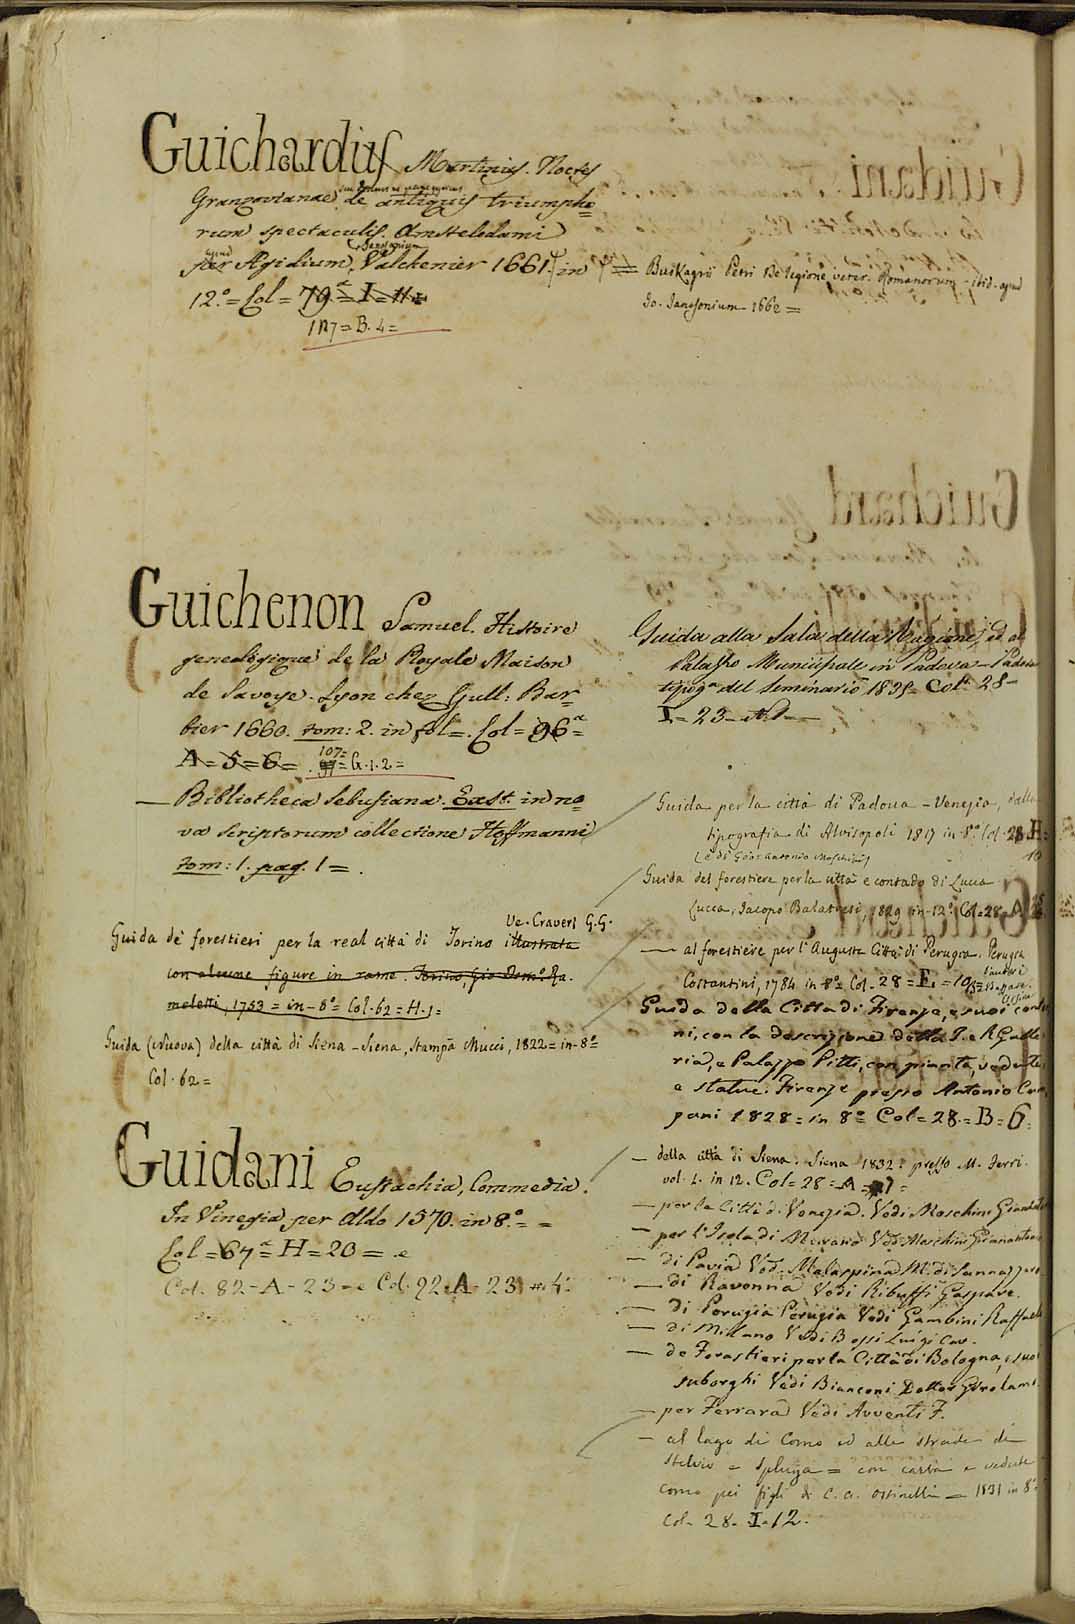 Guichardus Martinius. Noctes
Granzovianae de antiquis triumpho=
rum spectaculis. Amstelodami
apud
Janssonium
per Ægidium Valckenier 1661. in
12.° = Col = 79.ª = I = H =
117 = B. 4 =
= Buskagrii Petri De legione veter. Romanorum - ibid. apud
Jo. Janssonium 1662 =
Guichenon Samuel. Histoire
genealogique de la Royale Maison
de Savoye. Lyon chez Gull: Bar
bier 1660. tom: 2. in fol =. Col = 96ª =
A = 5 = 6 =
107 =
97 = G. 1. 2 =
— Bibliotheca Sebusiana. Exst. in no
va scriptorum collectione Hoffmanni
tom: 1. pag. 1 = .
Ve. Craveri G. G.
Guida de' forestieri per la real città di Torino illustrata
con alcune figure in rame. Torino, Gio Dom.° Ra.
meletti, 1753 = in - 8° = Col. 62 = H. 1 =
Guida (Nuova) della città di Siena - Siena, Stampª Mucci, 1822 = in - 8° =
Col. 62 =
Guidani Eustachia, Commedia.
In Vinegia per Aldo 1570. in 8.° =
Col = 67ª = H = 20 = e
Col. 82 - A - 23 - e Col. 92 . A - 23 = 4.
Guida alla Sala della Ragione, ed al
Palazzo Municipale in Padova - Padova
tipogª del Seminario 1835 = Colª 28 -
I = 23 - N.1 -
Guida per la città di Padova - Venezia, dalla
tipografia di Alvisopoli 1817 in 8° Col. 28 H =
10
(è di Giovantonio Moschini)
Guida del forestiere per la città e contado di Lucca
Lucca, Jacopo Balatresi, 1829 in - 12° Col = 28 - A
— al forestiere per l'Augusta Città di Perugia. Perugia
Costantini, 1784. in 8° = Col. 28 = E. = 10
Guida della Città di Firenze, e suoi contor
ni, con la descrizione della I. e R Galle
ria, e Palazzo Pitti, con pianta, vedute,
e statue. Firenze presso Antonio Cam
pani 1828 = in 8° Col = 28. = B = 6 =
— della città di Siena. Siena 1832 = presso M. Ferri.
vol. 1. in 12. Col = 28 = A = 7 =
— per la Città di Venezia. Vedi Moschini Giannant
— per l'Isola di Murano Ved: Moschini Gianantonio
— di Pavia Ved. Malaspina M. di Sannazzaro
— di Ravenna Vedi Ribuffi Gaspare.
— di Perugia Perugia Vedi Gambini Raffaele
— di Milano Vedi Bossi Luigi Cav.
— de Forastieri per la Città di Bologna, e suoi
suborghi Vedi Bianconi Dottor Girolamo.
— per Ferrara Vedi Avventi F.
— al lago di Como ed alle strade di
Stelvio e Spluga = con carta e vedute
Como pei figli di C. A. Ostinelli = 1831 in 8°
Col. 28. I. 12.